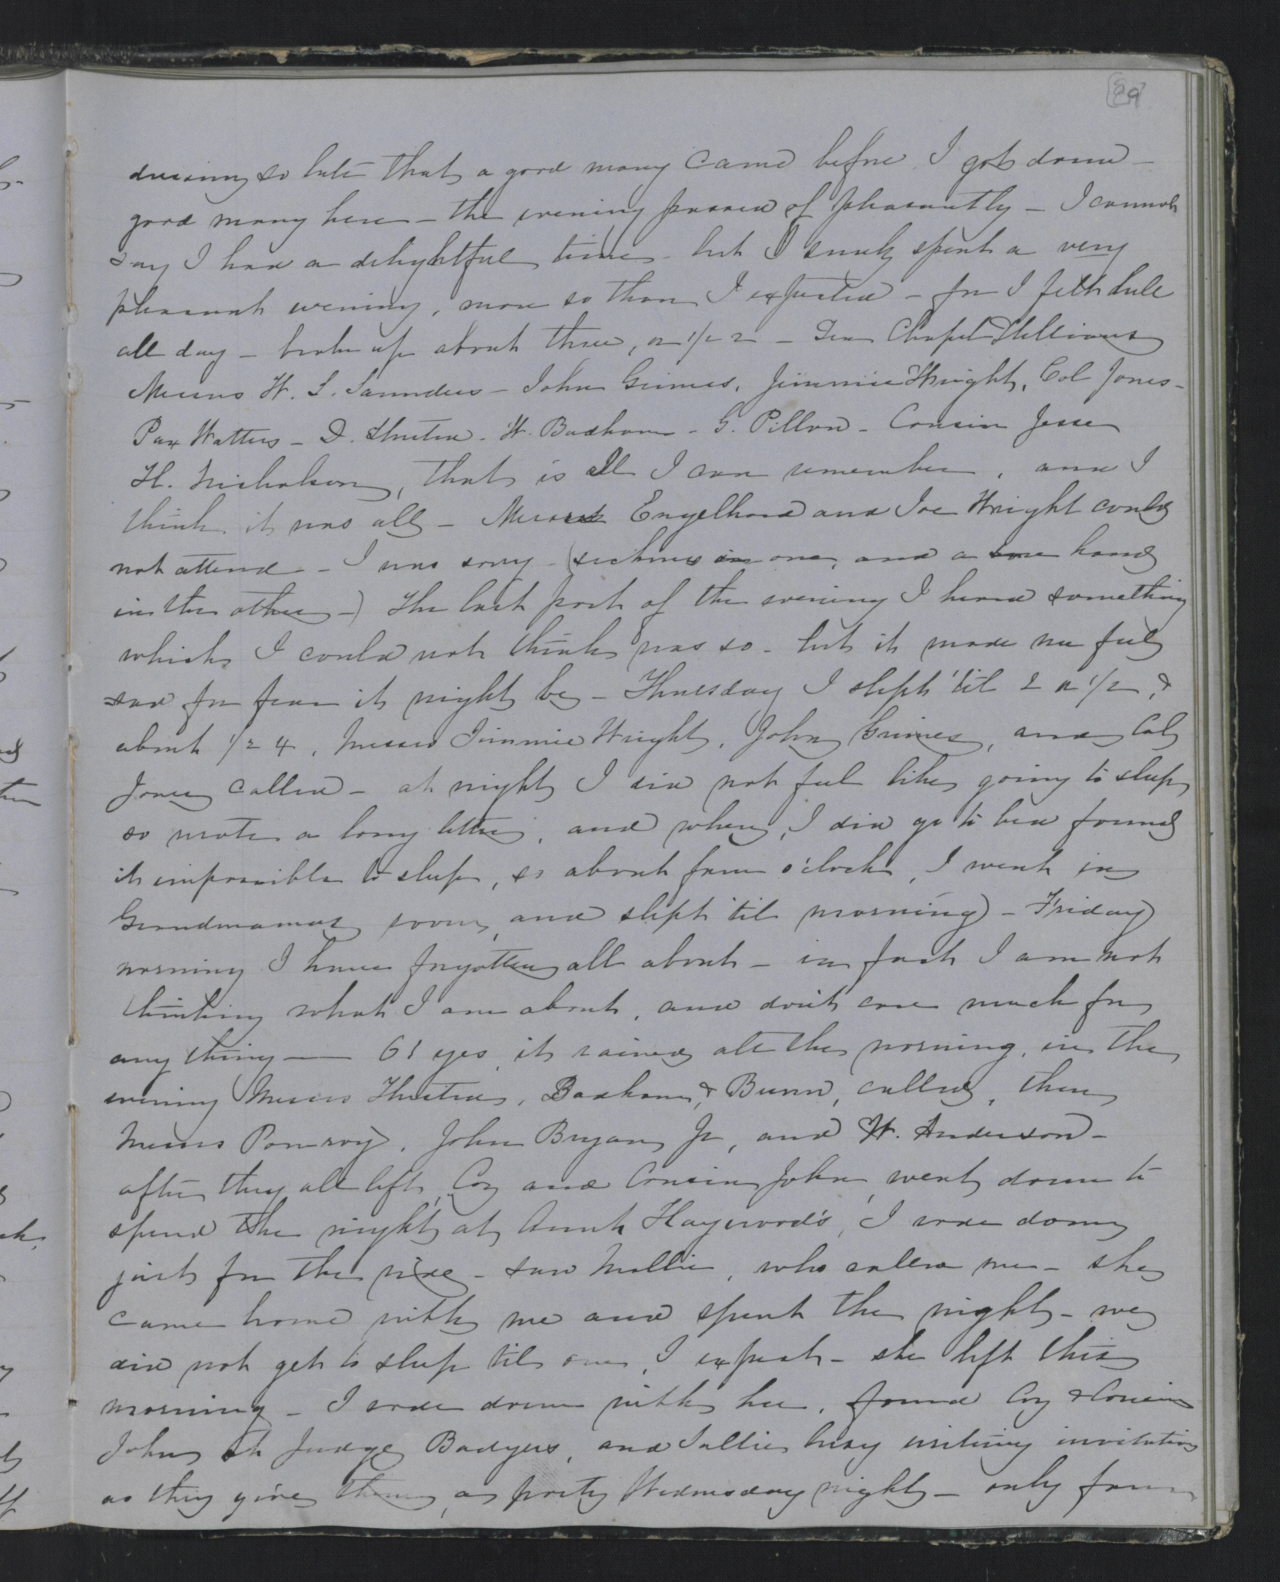 89
dressing so late that a good many came before I got down -
good many here - the evening passed of pleasantly - I cannot
say I had a delightful time - but I spent a very
pleasant evening, more so than I expected - for I felt dull
all day - broke up about three, or 1/2 2 - Chapel Williams
Messrs W. L. Saunders - John Grimes, Jimmie Wright, Col Jones -
Pax Watters - D. Thurston - W. Badham - G. Pillow - Cousin Jesse
H. Nicholson, that is all I can remember, and I
think it was all - Messrs Engelhard and Joe Wright could
not attend - I was sorry - (sickness in one, and a sore hand
in the other -) The last part of the evening I heard something
which I could not think was so - but it made me feel
sad for fear it might be - Thursday I slept 'til 2 or 1/2, &
about 1/2 4, Messrs Jimmie Wright, John Grimes, and Col
Jones called - at night I did not feel like going to sleep
so wrote a long letter, and when I did go to bed found
it impossible to sleep, so about four o'clock, I went in
Grandmamas room, and slept 'til morning) - Friday
morning I have forgotten all about - in fact I am not
thinking what I am about, and don't care much for
any thing — O! yes, it rained all the morning, in the
evening Messrs Thurston, Badham, & Bunn, called, then
Messrs Pomroy, John Bryan Jr, and W. Anderson -
after they all left, Coz and Cousin John, went down to
spend the night at Aunt Haywood's, I rode down
just for the ride - saw Mollie, who called me - she
came home with me and spent the night - we
did not get to sleep til one, I expect - she left this
morning - I rode down with her, found Coz & Cousin
John at Judge Badgers, and Sallie busy writing invitations
as they give them a party Wednesday night - only four